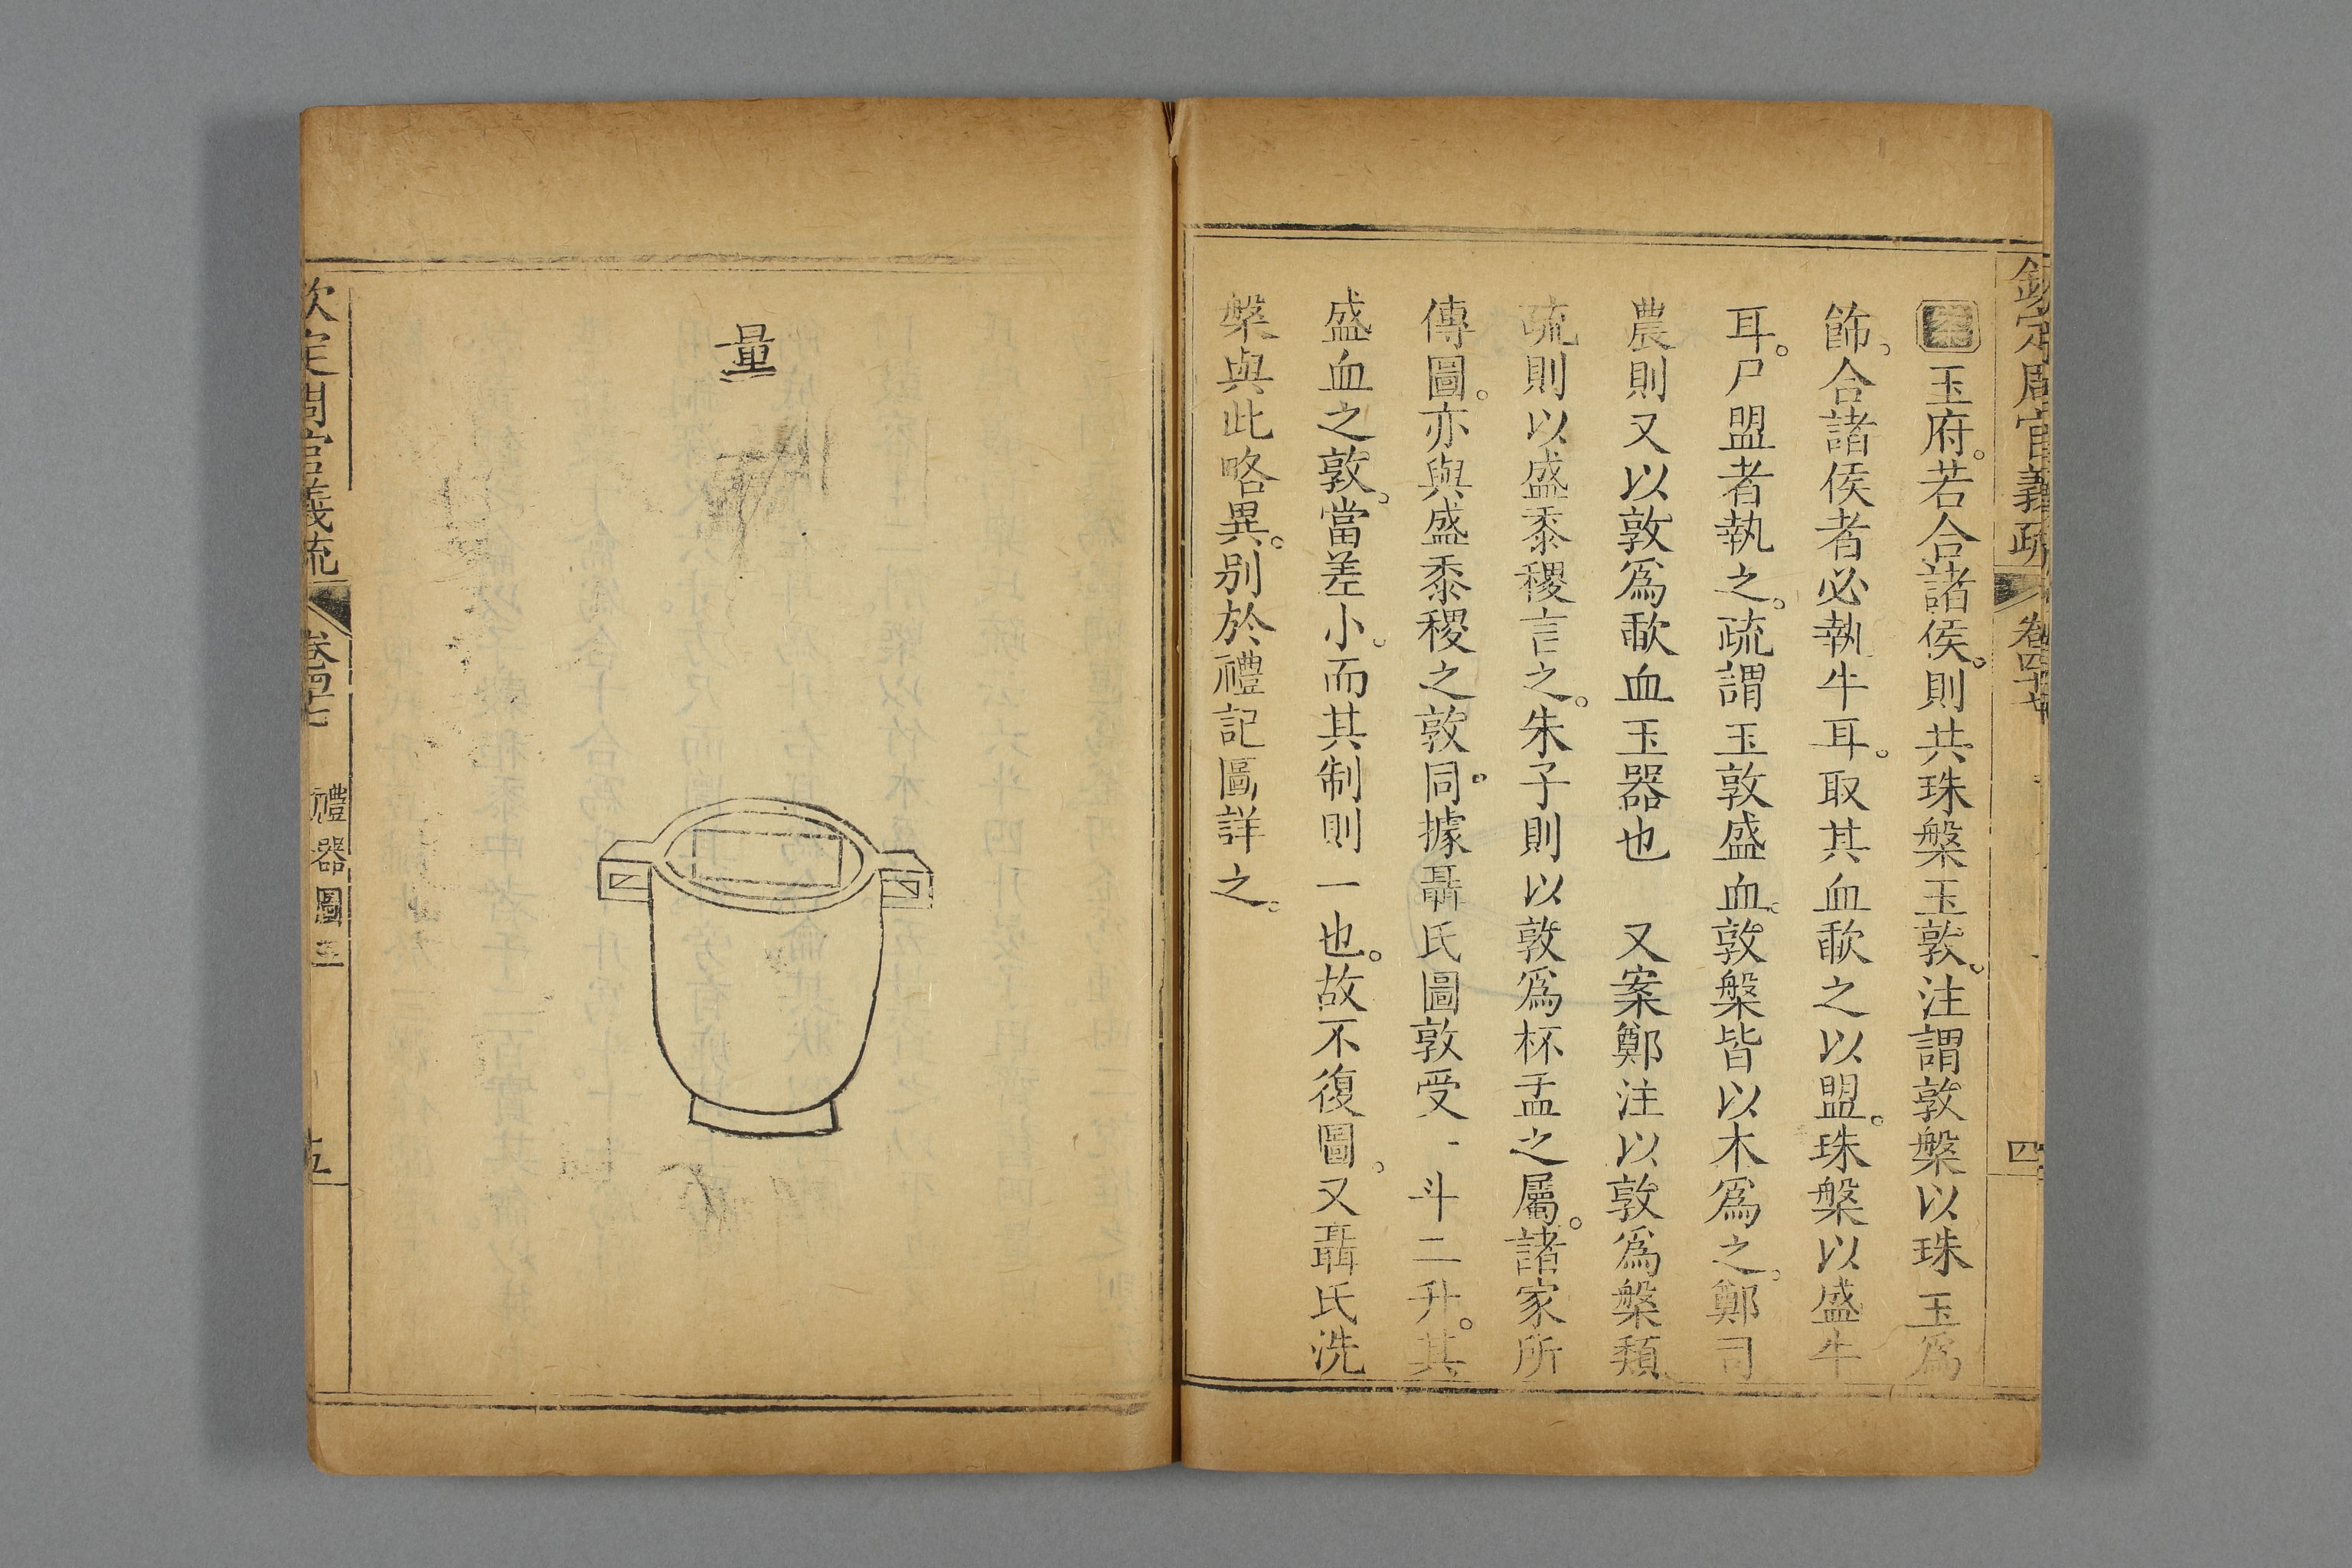 欽定周官義疏 卷四十七 四
案玉府。若合諸侯。則共珠槃玉敦。注謂敦槃以珠玉爲
飾。合諸侯者必執牛耳。取其血歃之以盟。珠槃以盛牛
耳。尸盟者執之。疏謂玉敦盛血。敦槃皆以木爲之。鄭司
農則又以敦爲歃血玉器也　又案鄭注以敦爲槃類。
疏則以盛黍稷言之。朱子則以敦爲杯盂之屬。諸家所
傳圖。亦與盛黍稷之敦同。據聶氏圖敦受一斗二升。其
盛血之敦。當差小。而其制則一也。故不復圖。又聶氏洗
槃與此略異。别於禮記圖詳之。
量
欽定周官義疏 卷四十七 禮器圖三 五